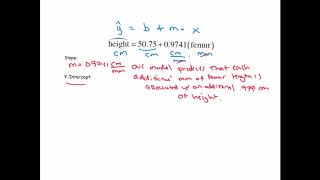 ŷ = b + m · x
height = 50.75 + 0.9741 (femur)
cm cm cm/mm · mm
Slope:
m = 0.9741 cm/mm our model predicts that each
additional mm of femur length is
Y-Intercept:
associated w/ an additional .9741 cm
of height.